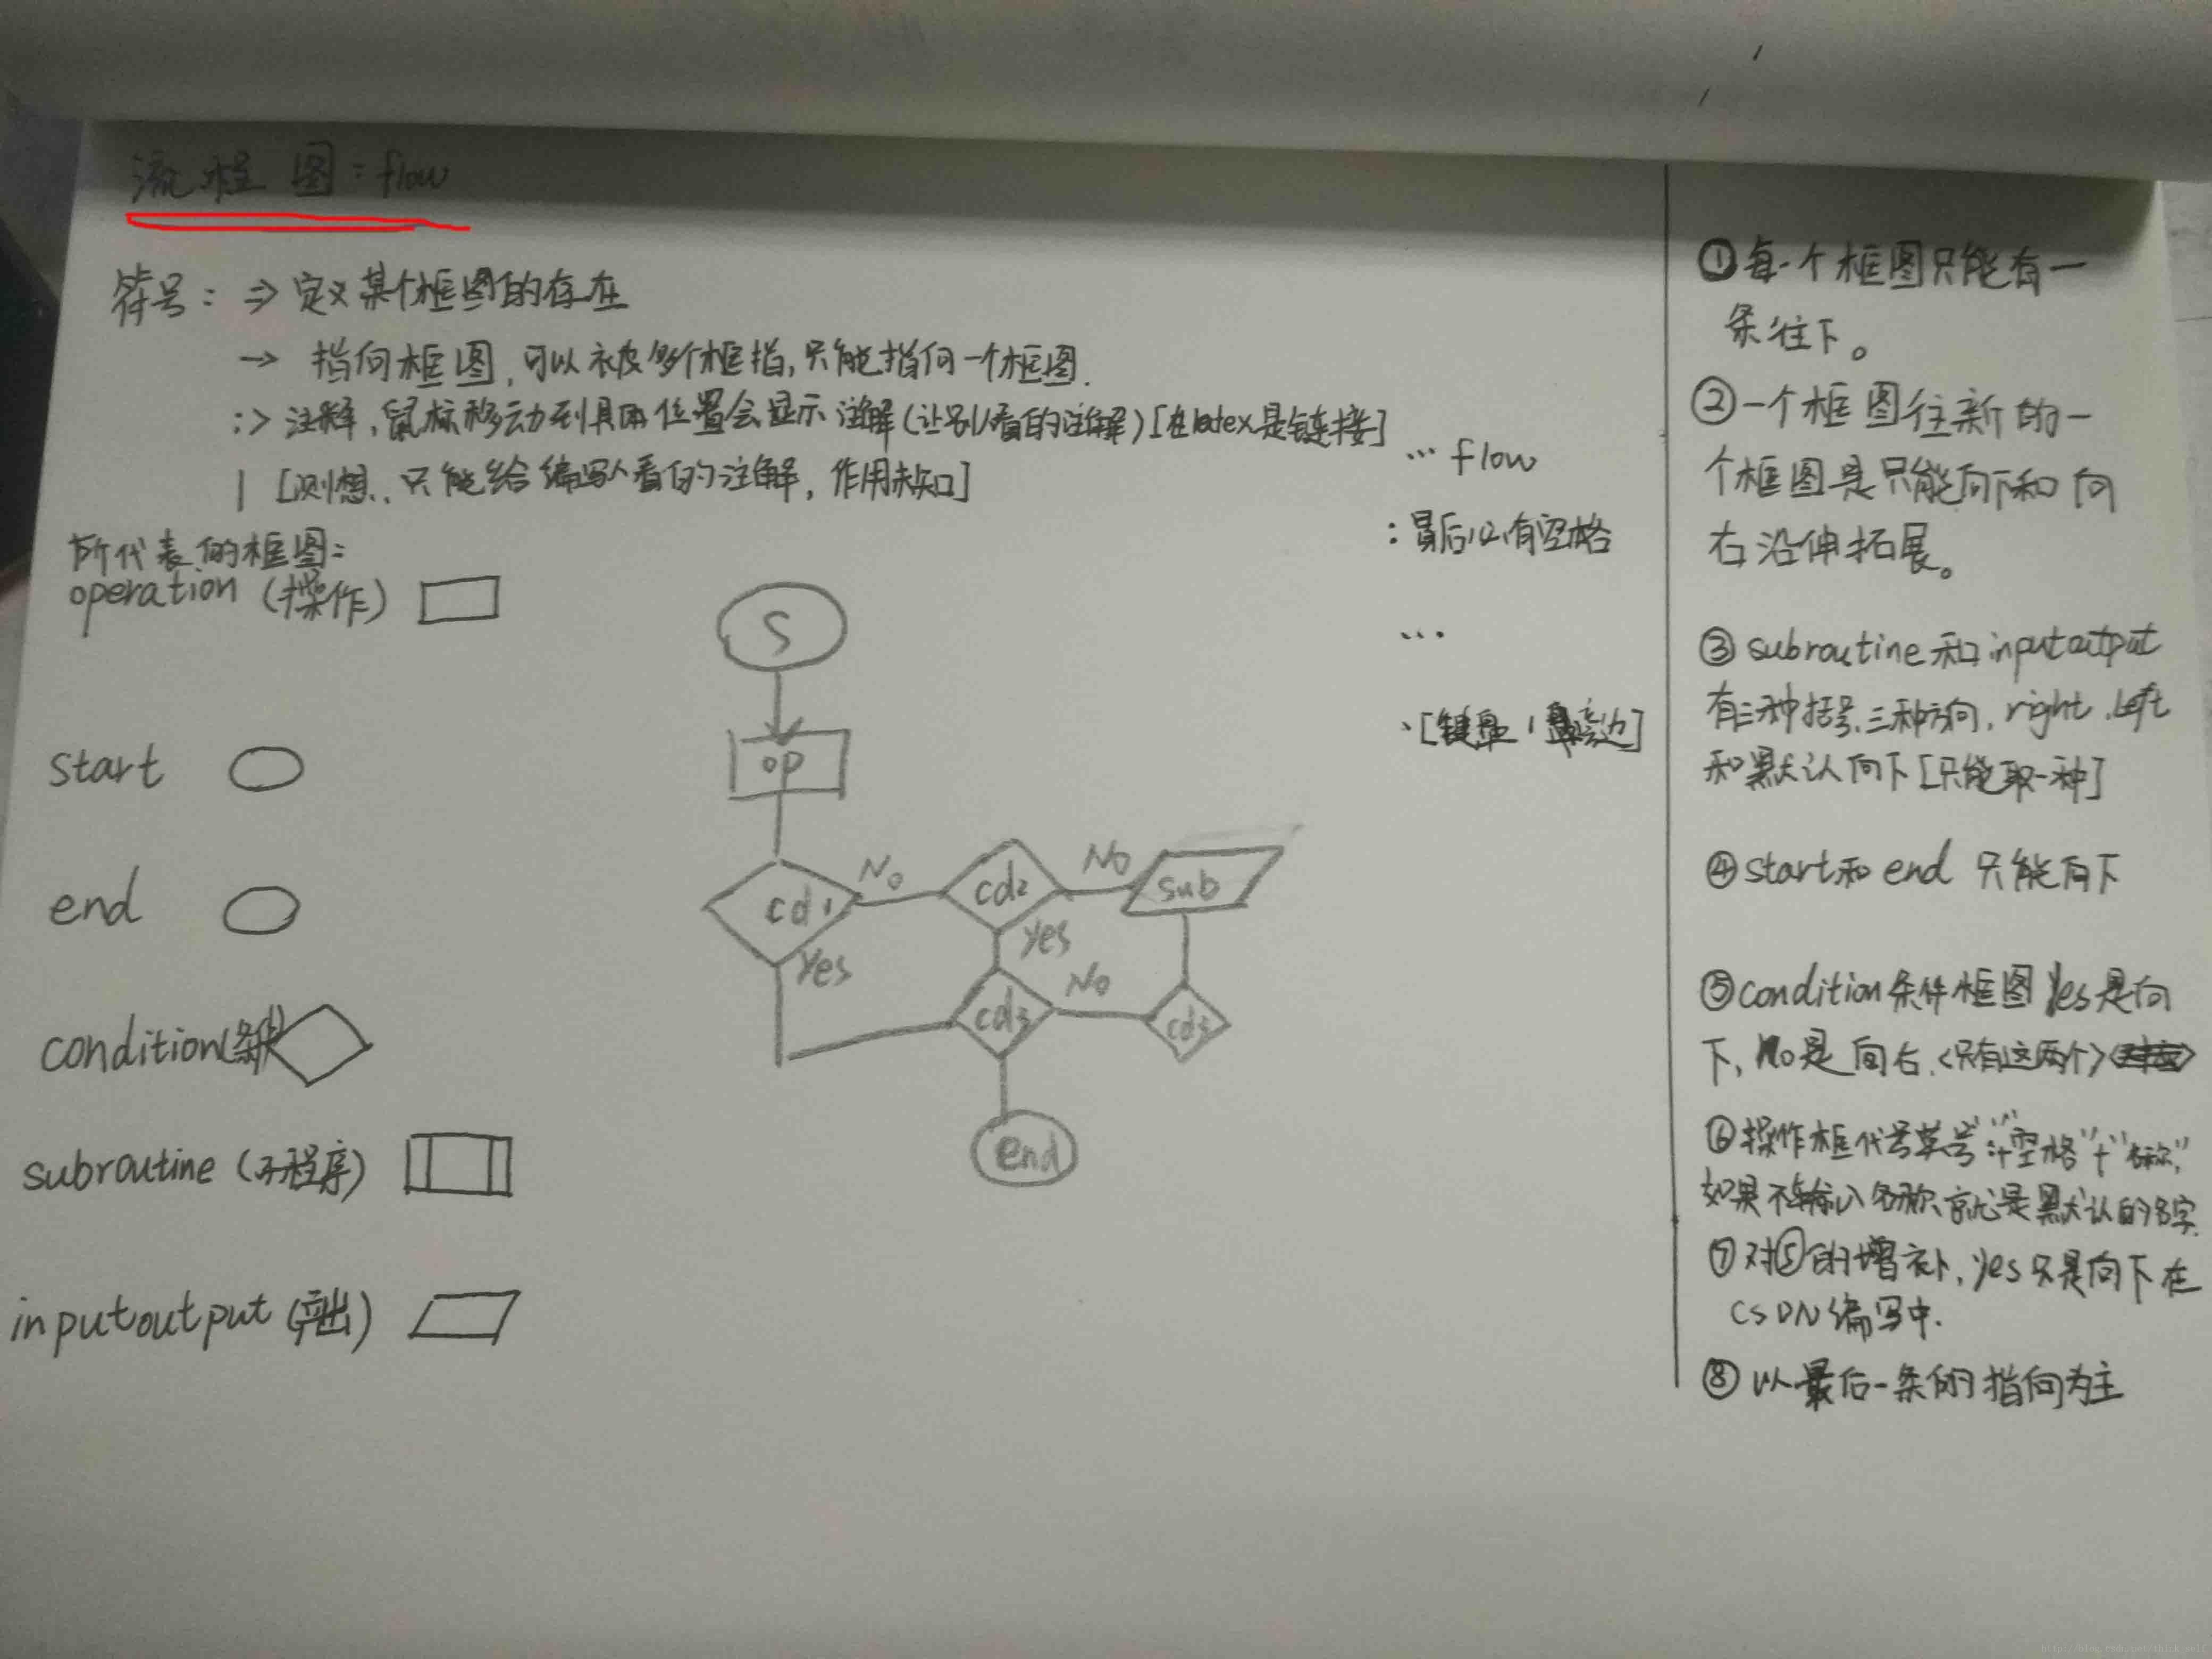 流程图：flow
符号：⇒ 定义某个框图的存在
→ 指向框图，可以被多个框指，只能指向一个框图.
:> 注释，鼠标移动到具体位置会显示注解(让别人看的注解)[在latex是链接]
| [测想..只能给编写人看的注解，作用未知]
所代表的框图：
operation (操作)
start
end
condition(条件)
subroutine (子程序)
inputoutput
S
op
cd1
No
cd2
No
sub
Yes
yes
cd3
No
cd3
end
... flow
: 最后必有空格
...
、[键盘 1 旁边]
①每一个框图只能有一
条往下。
②一个框图往新的一
个框图是只能向下和向
右沿伸拓展。
③subroutine和inputoutput
有三种括号、三种方向，right、left
和默认向下[只能取一种]
④start和end 只能向下
⑤condition条件框图 Yes是向
下，No是向右.<只有这两个>
⑥操作框代号 + "空格" + "名称"，
如果不输入名称、就是默认的名字.
⑦对⑤的增补，yes只是向下在
CSDN编写中.
⑧以最后一条的指向为主